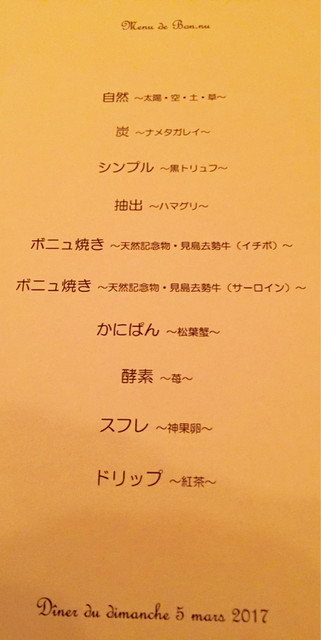 Menu de Bon.nu
自然 ～太陽・空・土・草～
炭 ～ナメタガレイ～
シンプル ～黒トリュフ～
抽出 ～ハマグリ～
ボニュ焼き ～天然記念物・見島去勢牛（イチボ）～
ボニュ焼き ～天然記念物・見島去勢牛（サーロイン）～
かにぱん ～松葉蟹～
酵素 ～苺～
スフレ ～神果卵～
ドリップ ～紅茶～
Dîner du dimanche 5 mars 2017